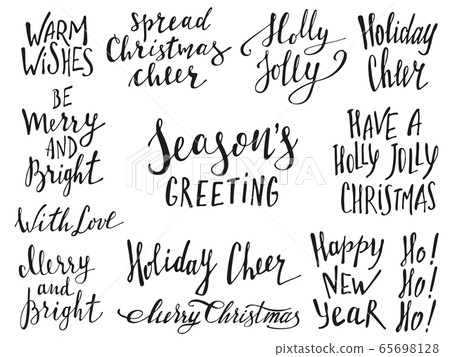 WARM
WISHES
spread
Christmas
cheer
Holly
Jolly
Holiday
Cheer
BE
Merry
AND
Bright
Season's
GREETING
HAVE A
HOLLY JOLLY
CHRISTMAS
With Love
Merry
and
Bright
Holiday Cheer
Merry Christmas
Happy
NEW
YEAR
Ho!
Ho!
Ho!
65698128